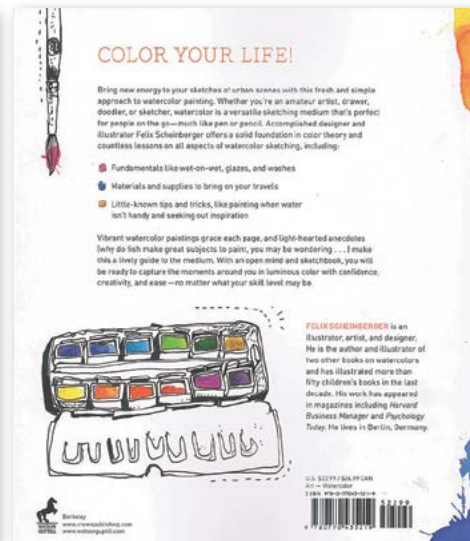 COLOR YOUR LIFE!
Bring new energy to your sketches of urban scenes with this fresh and simple
approach to watercolor painting. Whether you're an amateur artist, drawer,
doodler, or sketcher, watercolor is a versatile sketching medium that's perfect
for people on the go—much like pen or pencil. Accomplished designer and
illustrator Felix Scheinberger offers a solid foundation in color theory and
countless lessons on all aspects of watercolor sketching, including:
Fundamentals like wet-on-wet, glazes, and washes
Materials and supplies to bring on your travels
Little-known tips and tricks, like painting when water
isn't handy and seeking out inspiration
Vibrant watercolor paintings grace each page, and light-hearted anecdotes
(why do fish make great subjects to paint, you may be wondering . . .) make
this a lively guide to the medium. With an open mind and sketchbook, you will
be ready to capture the moments around you in luminous color with confidence,
creativity, and ease—no matter what your skill level may be.
FELIX SCHEINBERGER is an
illustrator, artist, and designer.
He is the author and illustrator of
two other books on watercolors
and has illustrated more than
fifty children's books in the last
decade. His work has appeared
in magazines including Harvard
Business Manager and Psychology
Today. He lives in Berlin, Germany.
U.S. $22.99 / $26.99 CAN
Art — Watercolor
52299
9 780770 435219
Berkeley
www.crownpublishing.com
www.watsonguptill.com